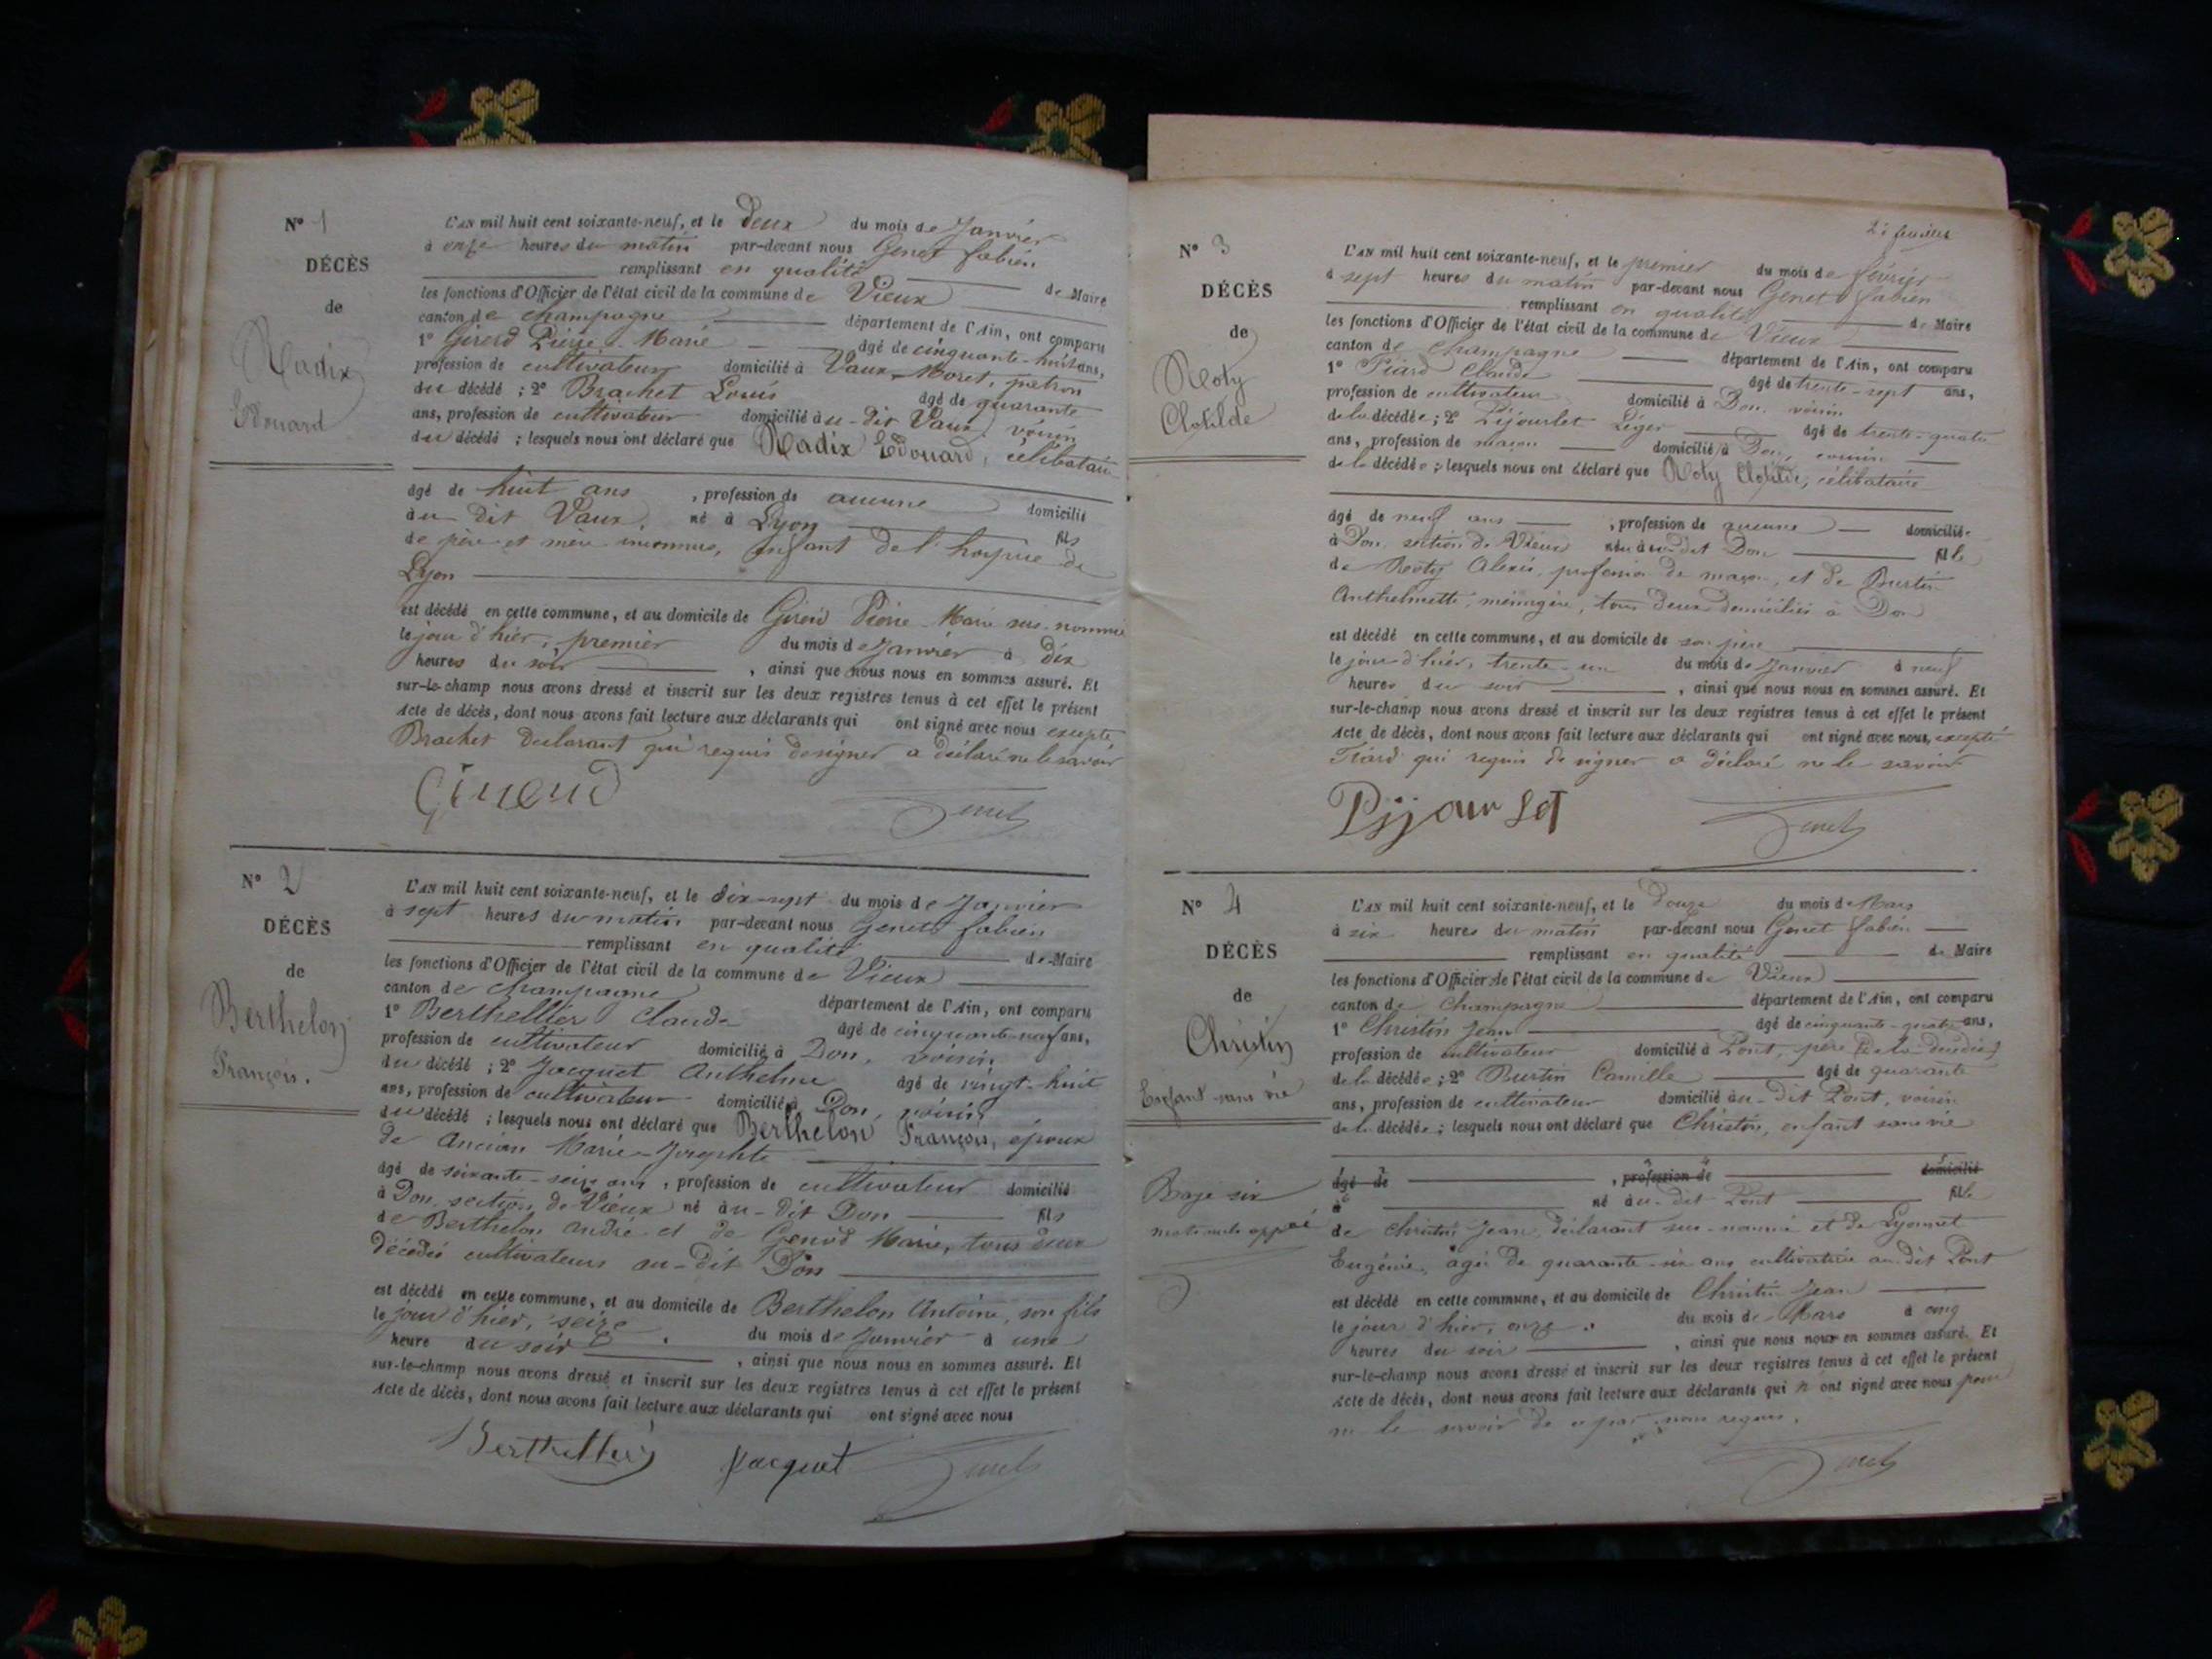 N° 1
DÉCÈS
de
Radix
Edouard
L'AN mil huit cent soixante-neuf, et le deux du mois de Janvier
à onze heures du matin par-devant nous Genet fabien
remplissant en qualité de Maire
les fonctions d'Officier de l'état civil de la commune de Vieux
canton de Champagne département de l'Ain, ont comparu
1° Gireod Pierre-Marie âgé de cinquante-huit ans,
profession de cultivateur domicilié à Vaux-Moret, patron
du décédé ; 2° Brachet Louis âgé de quarante
ans, profession de cultivateur domicilié àu-dit Vaux, voisin
du décédé ; lesquels nous ont déclaré que Radix Edouard, célibataire
âgé de huit ans , profession de aucune domicilié
àu dit Vaux, né à Lyon fils
de père et mère inconnus, enfant de l'hospice de
Lyon
est décédé en cette commune, et au domicile de Pierre-Marie sus-nommé
le jour d'hier, premier du mois de Janvier à dix
heures du soir , ainsi que nous nous en sommes assuré. Et
sur-le-champ nous avons dressé et inscrit sur les deux registres tenus à cet effet le présent
Acte de décès, dont nous avons fait lecture aux déclarants qui ont signé avec nous excepté
Brachet déclarant qui requis de signer a déclaré ne le savoir
Genet
N° 2
DÉCÈS
de
Berthelon
François.
L'AN mil huit cent soixante-neuf, et le dix-sept du mois de Janvier
à sept heures du matin par-devant nous Genet fabien
remplissant en qualité de Maire
les fonctions d'Officier de l'état civil de la commune de Vieux
canton de Champagne département de l'Ain, ont comparu
1° Berthellier Claude âgé de cinquante-neuf ans,
profession de cultivateur domicilié à Don, voisin
du décédé ; 2° Jacquet Anthelme âgé de vingt-huit
ans, profession de cultivateur domicilié à Don, voisin
du décédé ; lesquels nous ont déclaré que Berthelon François, époux
de Ancian Marie-Josephte
âgé de soixante-seize ans , profession de cultivateur domicilié
à Don, section de Vieux né àu-dit Don fils
de Berthelon André et de Genod Marie, tous deux
décédés cultivateurs au-dit Don
est décédé en cette commune, et au domicile de Berthelon Antoine, son fils
le jour d'hier, seize du mois de Janvier à une
heure du soir , ainsi que nous nous en sommes assuré. Et
sur-le-champ nous avons dressé et inscrit sur les deux registres tenus à cet effet le présent
Acte de décès, dont nous avons fait lecture aux déclarants qui ont signé avec nous
Berthellier Jacquet Genet
N° 3
DÉCÈS
de
Roty
Clotilde
L'AN mil huit cent soixante-neuf, et le premier du mois de février
à sept heures du matin par-devant nous Genet fabien
remplissant en qualité de Maire
les fonctions d'Officier de l'état civil de la commune de Vieux
canton de Champagne département de l'Ain, ont comparu
1° Tiard Claude âgé de trente-sept ans,
profession de cultivateur domicilié à Don, voisin
de la décédée ; 2° Péjourlet Léger âgé de trente-quatre
ans, profession de maçon domicilié à Don, cousin
de la décédée ; lesquels nous ont déclaré que Roty Clotilde, célibataire
âgé de neuf ans , profession de aucune domicilié
à Don, section de Vieux née àu-dit Don fille
de Roty Alexis, profession de maçon, et de Burtin
Anthelmette, ménagère, tous deux domiciliés à Don
est décédé en cette commune, et au domicile de son père
le jour d'hier, trente-un du mois de Janvier à neuf
heures du soir , ainsi que nous nous en sommes assuré. Et
sur-le-champ nous avons dressé et inscrit sur les deux registres tenus à cet effet le présent
Acte de décès, dont nous avons fait lecture aux déclarants qui ont signé avec nous, excepté
Tiard qui requis de signer a déclaré ne le savoir
Genet
N° 4
DÉCÈS
de
Christin
Enfant sans vie
L'AN mil huit cent soixante-neuf, et le douze du mois de Mars
à six heures du matin par-devant nous Genet fabien
remplissant en qualité de Maire
les fonctions d'Officier de l'état civil de la commune de Vieux
canton de Champagne département de l'Ain, ont comparu
1° Christin Jean âgé de cinquante-quatre ans,
profession de cultivateur domicilié à Pont, père
de la décédée ; 2° Burtin Camille âgé de quarante
ans, profession de cultivateur domicilié àu-dit Pont, voisin
de la décédée ; lesquels nous ont déclaré que Christin, enfant sans vie
âgé de , profession de domicilié
à né àu-dit Pont fille
de Christin Jean, déclarant sus-nommé et de Lyonnet
Eugénie, âgée de quarante-six ans cultivatrice au-dit Pont
est décédé en cette commune, et au domicile de Christin Jean
le jour d'hier, onze du mois de Mars à cinq
heures du soir , ainsi que nous nous en sommes assuré. Et
sur-le-champ nous avons dressé et inscrit sur les deux registres tenus à cet effet le présent
Acte de décès, dont nous avons fait lecture aux déclarants qui n'ont signé avec nous pour
ne le savoir de ce par nous requis.
Genet